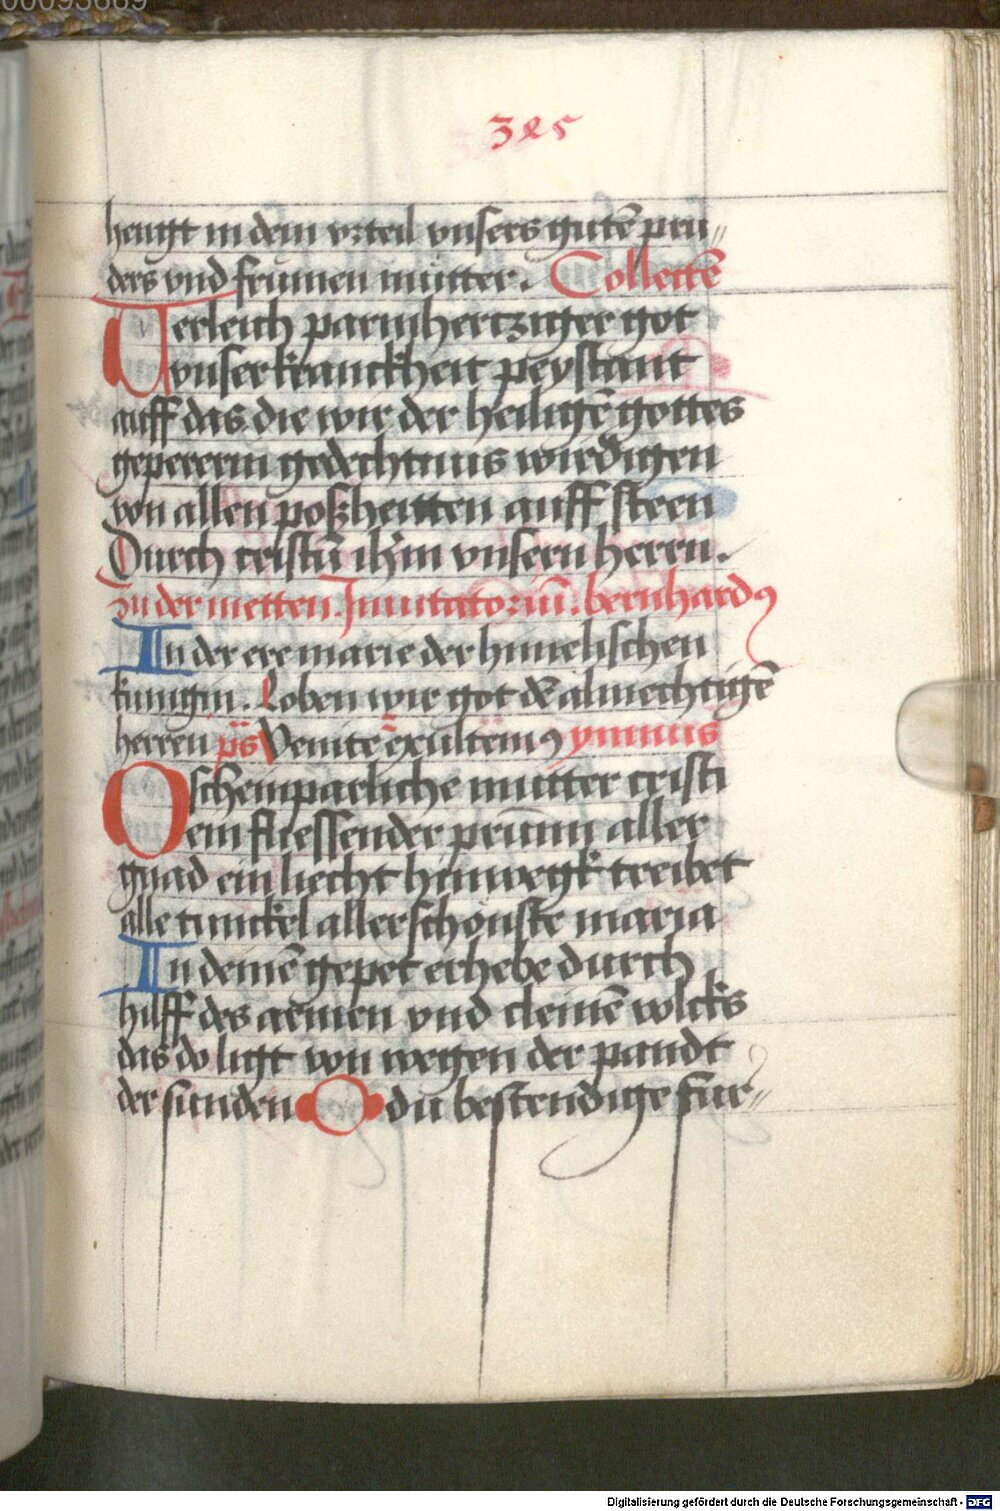 00093669
325
hengt in dem vrteil vnsers gutē pru„
ders vnd frumen mutter. Collectē
Verleich parmhertziger got
vnser kranckheit peystant
auff das die wir der heiligē gottes
gepererin gedechtnus wirdigen
von allen poßheitten auff steen
Durch cristū ihm vnsern herrn.
Zu der metten. Inuitatoriū. bernhardꝰ
In der ere marie der himelischen
kunigin. Loben wir got dē almechtigē
herren ps Venite exultemꝰ ymnus
O scheinparliche mutter cristi
ein fliessender prunn aller
gnad ein liecht hinwegk treibet
alle tunckel allerschönste maria
In deinē gepet erhebe durch
hilff des armen vnd cleinē volcks
das do ligt von wegen der pandt
der sunden O du bestendige fur„
Digitalisierung gefördert durch die Deutsche Forschungsgemeinschaft - DFG